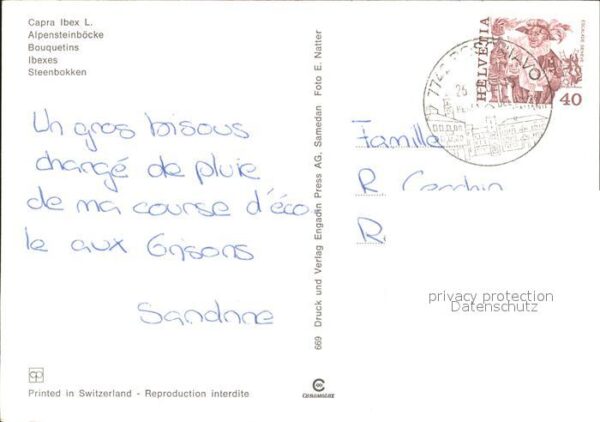 Capra Ibex L.
Alpensteinböcke
Bouquetins
Ibexes
Steenbokken
Un gros bisous
chargé de pluie
de ma course d'éco
le aux Grisons
Sandrine
Printed in Switzerland - Reproduction interdite
669 Druck und Verlag Engadin Press AG, Samedan Foto E. Natter
HELVETIA
40
Famille
R
R.
privacy protection
Datenschutz